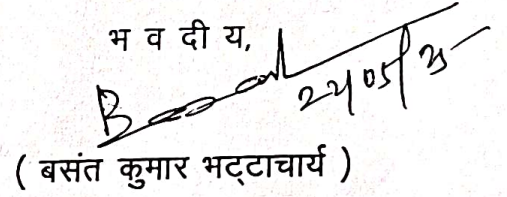 भ व दी य,
22/05/25
( बसंत कुमार भट्टाचार्य )